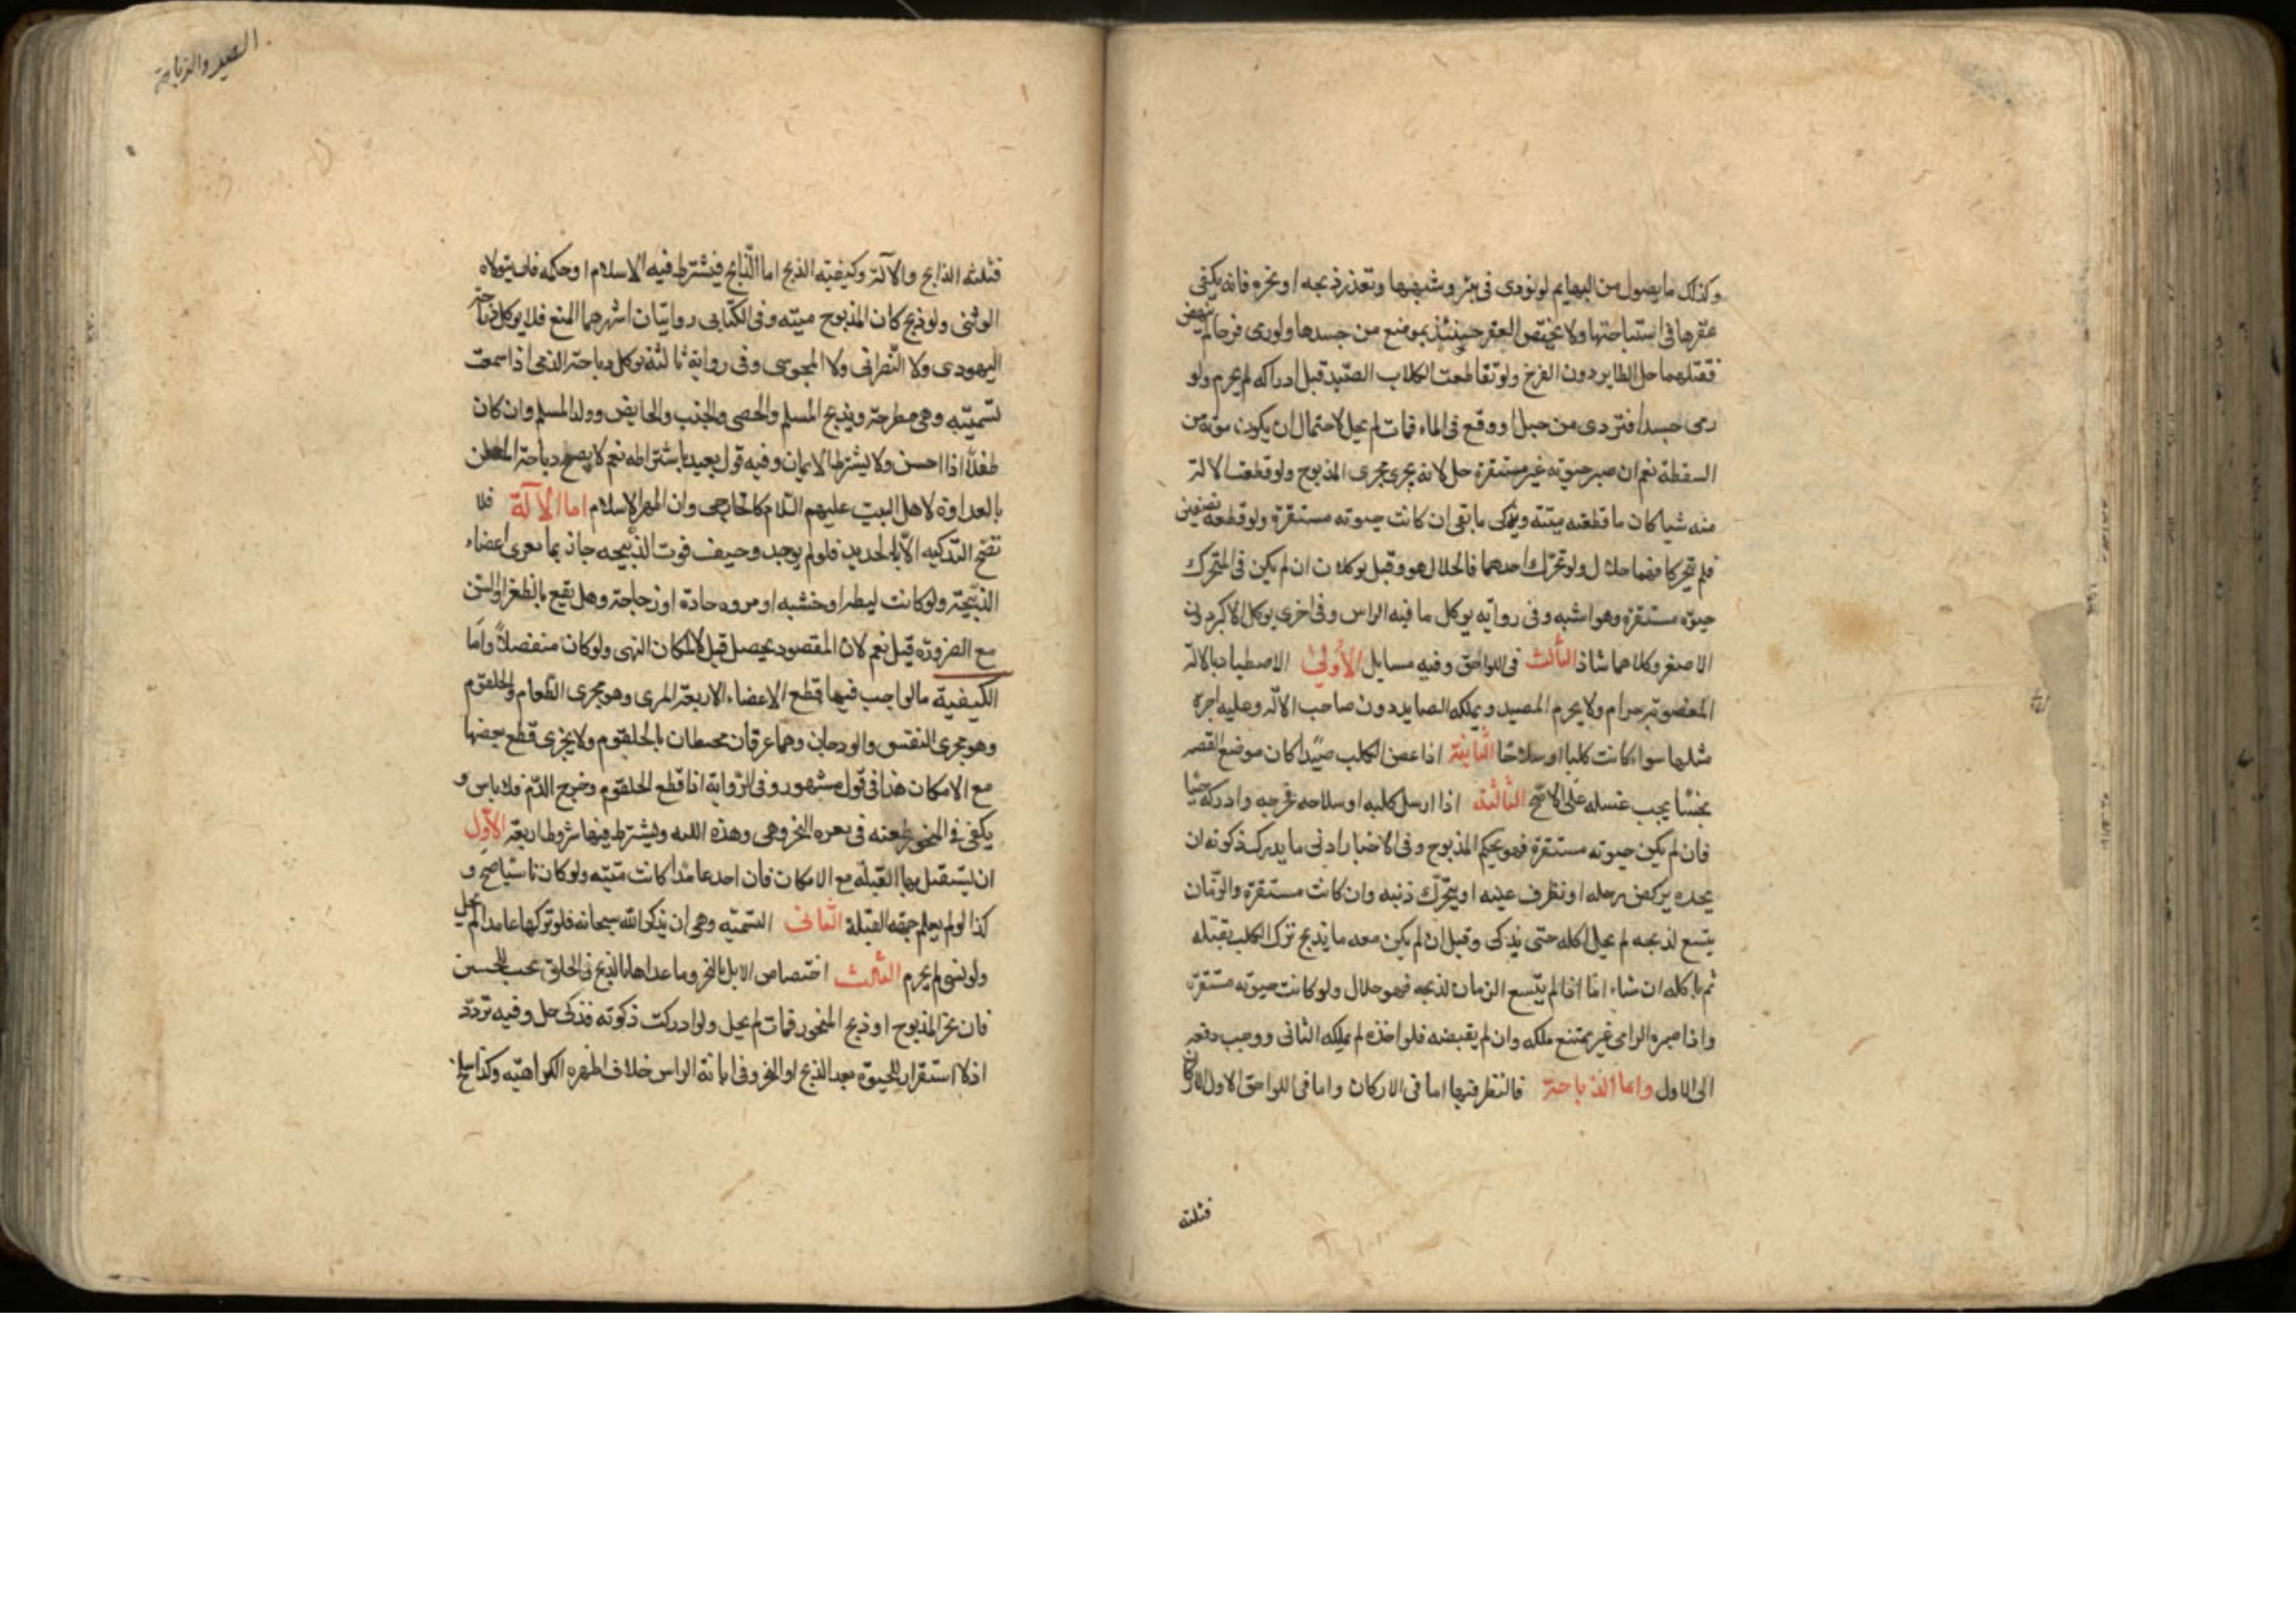 وكذلك ما يصول من البهايم لو تردى فى بئر وشبهها وتعذر ذبحه او نحره فانه يكفى
عقرها فى استباحتها ولا يختص العقر حينئذ بموضع من جسدها ولو رمى فرخا لم ينهض
فقتلهما حل الطاير دون الفرخ ولو تقاطعت الكلاب الصيد قبل ادراكه لم يحرم ولو
رمى صيدا فتردى من جبل او وقع فى الماء فمات لم يحل لاحتمال ان يكون موته من
السقطة نعم ان صير حيوته غير مستقرة حل لانه يجرى مجرى المذبوح ولو قطعت الالة
منه شيا كان ما قطعته ميتة ويذكى ما بقى ان كانت حيوته مستقرة ولو قطعه نصفين
فلم يتحركا فهما حلال ولو تحرك احدهما فالحلال هو وقيل يوكلان ان لم يكن فى المتحرك
حيوة مستقرة وهو اشبه وفى رواية يوكل ما فيه الراس وفى اخرى يوكل الاكبر دون
الاصغر وكلاهما شاذ الثالث فى اللواحق وفيه مسايل الاولى الاصطياد بالالة
المغصوبة حرام ولا يحرم الصيد ويملكه الصايد دون صاحب الالة وعليه اجرة
مثلها سواء كانت كلبا او سلاحا الثانية اذا عض الكلب صيدا كان موضع العضة
نجسا يجب غسله على الاصح الثالثة اذا ارسل كلبه او سلاحه فجرحه وادركه حيا
فان لم يكن حيوته مستقرة فهو بحكم المذبوح وفى الاخبار ادنى ما يدرك ذكوته ان
يجده يركض برجله او تطرف عينه او يتحرك ذنبه وان كانت مستقرة والزمان
يتسع لذبحه لم يحل اكله حتى يذكى وقيل ان لم يكن معه ما يذبح ترك الكلب يقتله
ثم ياكله ان شاء اما اذا لم يتسع الزمان لذبحه فهو حلال ولو كانت حيوته مستقرة
واذا صيره الرامى غير ممتنع ملكه وان لم يقبضه فلو اخذه لم يملكه الثانى ووجب دفعه
الى الاول واما الذباحة فالنظر فيها اما فى الاركان واما فى اللواحق الاول الاركان
فثلثة
الصيد والذباحة
فثلثة الذابح والآلة وكيفيته الذبح اما الذابح فيشترط فيه الاسلام او حكمه فلا يتولاه
الوثنى ولو ذبح كان المذبوح ميتة وفى الكتابى روايتان اشهرهما المنع فلا يوكل ذباحة
اليهودى ولا النصرانى ولا المجوسى وفى رواية ثالثة يوكل ذباحة الذمى اذا سمعت
تسميته وهى مطرحة ويذبح المسلم والخصى والجنب والحايض وولد المسلم وان كان
طفلا اذا احسن ولا يشترط الايمان وفيه قول بعيد باشتراطه نعم لا يصح ذباحة المعلن
بالعداوة لاهل البيت عليهم السلام كالخارجى وان اظهر الاسلام اما الآلة فلا
تصح التذكيه الا بالحديد فلو لم يوجد وخيف فوت الذبيحه جاز بما يفرى اعضاء
الذبيحة ولو كانت ليطه او خشبه او مروه حادة او زجاجة وهل يقع بالظفر والسن
مع الضرورة قيل نعم لان المقصود يحصل قيل لا لمكان النهى ولو كان منفصلا واما
الكيفية فالواجب فيها قطع الاعضاء الاربعة المرى وهو مجرى الطعام والحلقوم
وهو مجرى النفس والودجان وهما عرقان محيطان بالحلقوم ولا يجزى قطع بعضها
مع الامكان هذا فى قول مشهور وفى الرواية اذا قطع الحلقوم وخرج الدم فلا باس و
يكفى فى المنحور طعنه فى ثغره النحر وهى وهدة اللبه ويشترط فيها شروط اربعة الاول
ان يستقبل بها القبله مع الامكان فان اخل عامدا كانت ميته ولو كان ناسيا صح و
كذا لو لم يعلم جهة القبلة الثانى التسميه وهى ان يذكر الله سبحانه فلو تركها عامدا لم يحل
ولو نسى لم يحرم الثالث اختصاص الابل بالنحر وما عداها بالذبح فى الحلق تحت اللحيين
فان نحر المذبوح او ذبح المنحور فمات لم يحل ولو ادركت ذكوته فذكى حل وفيه تردد
اذ لا استقرار للحيوة بعد الذبح او النحر وفى ابانة الراس خلاف اظهره الكراهية وكذا سلخ